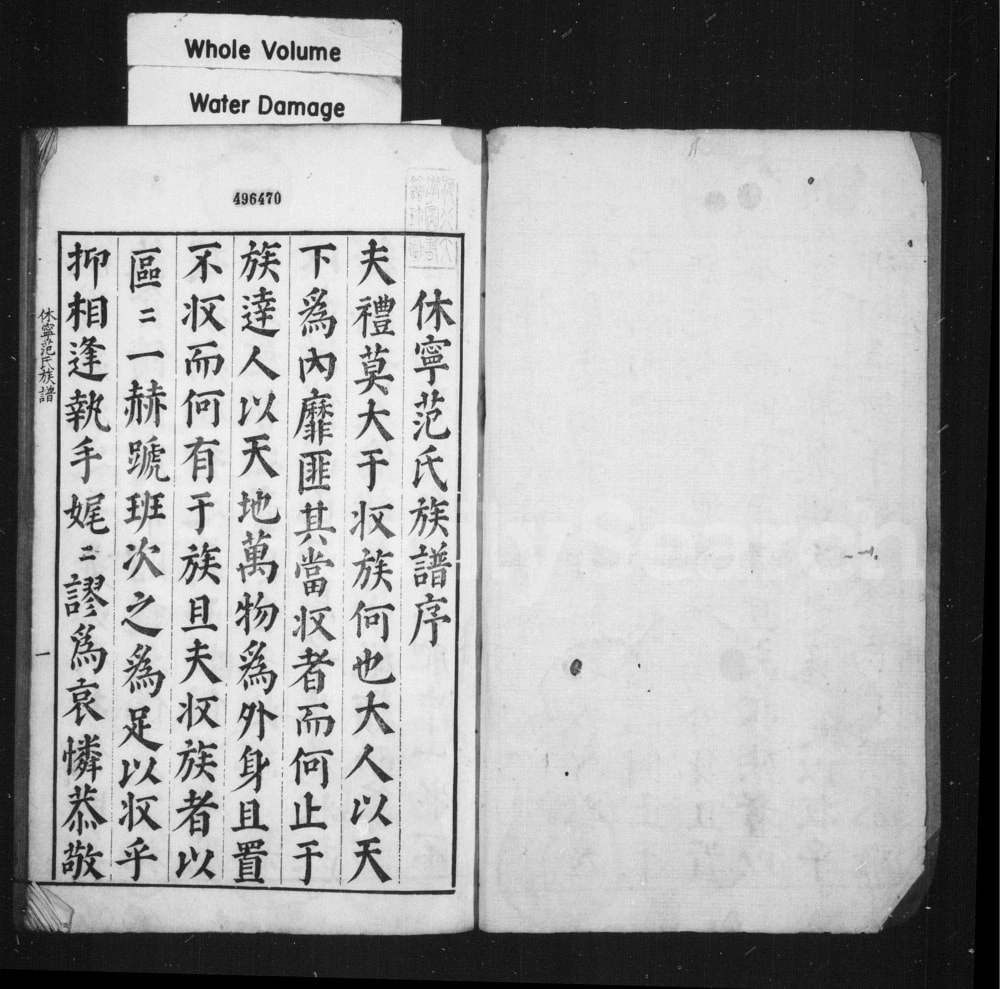 Whole Volume
Water Damage
496470
休寧范氏族譜序
夫禮莫大于収族何也大人以天
下爲內靡匪其當収者而何止于
族達人以天地萬物爲外身且置
不収而何有于族且夫収族者以
區〻一赫蹏班次之爲足以収乎
抑相逢執手娓〻謬爲哀憐恭敬
休寧范氏族譜
一